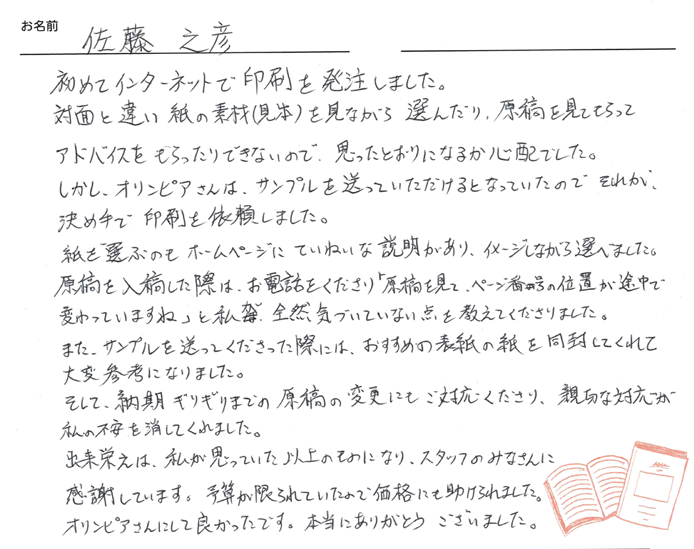 お名前 佐藤 之彦
初めてインターネットで印刷を発注しました。
対面と違い紙の素材(見本)を見ながら選んだり、原稿を見てもらって
アドバイスをもらったりできないので、思ったとおりになるか心配でした。
しかし、オリンピアさんは、サンプルを送っていただけるとなっていたのでそれが、
決め手で印刷を依頼しました。
紙を選ぶのもホームページにていねいな説明があり、イメージしながら選べました。
原稿を入稿した際は、お電話をくださり「原稿を見て、ページ番号の位置が途中で
変わっていますね」と私が全然気づいていない点を教えてくださりました。
また、サンプルを送ってくださった際には、おすすめの表紙の紙を同封してくれて
大変参考になりました。
そして、納期ギリギリまでの原稿の変更にもご対応くださり、親切な対応が
私の不安を消してくれました。
出来栄えは、私が思っていた以上のものになり、スタッフのみなさんに
感謝しています。予算が限られていたので価格にも助けられました。
オリンピアさんにして良かったです。本当にありがとうございました。